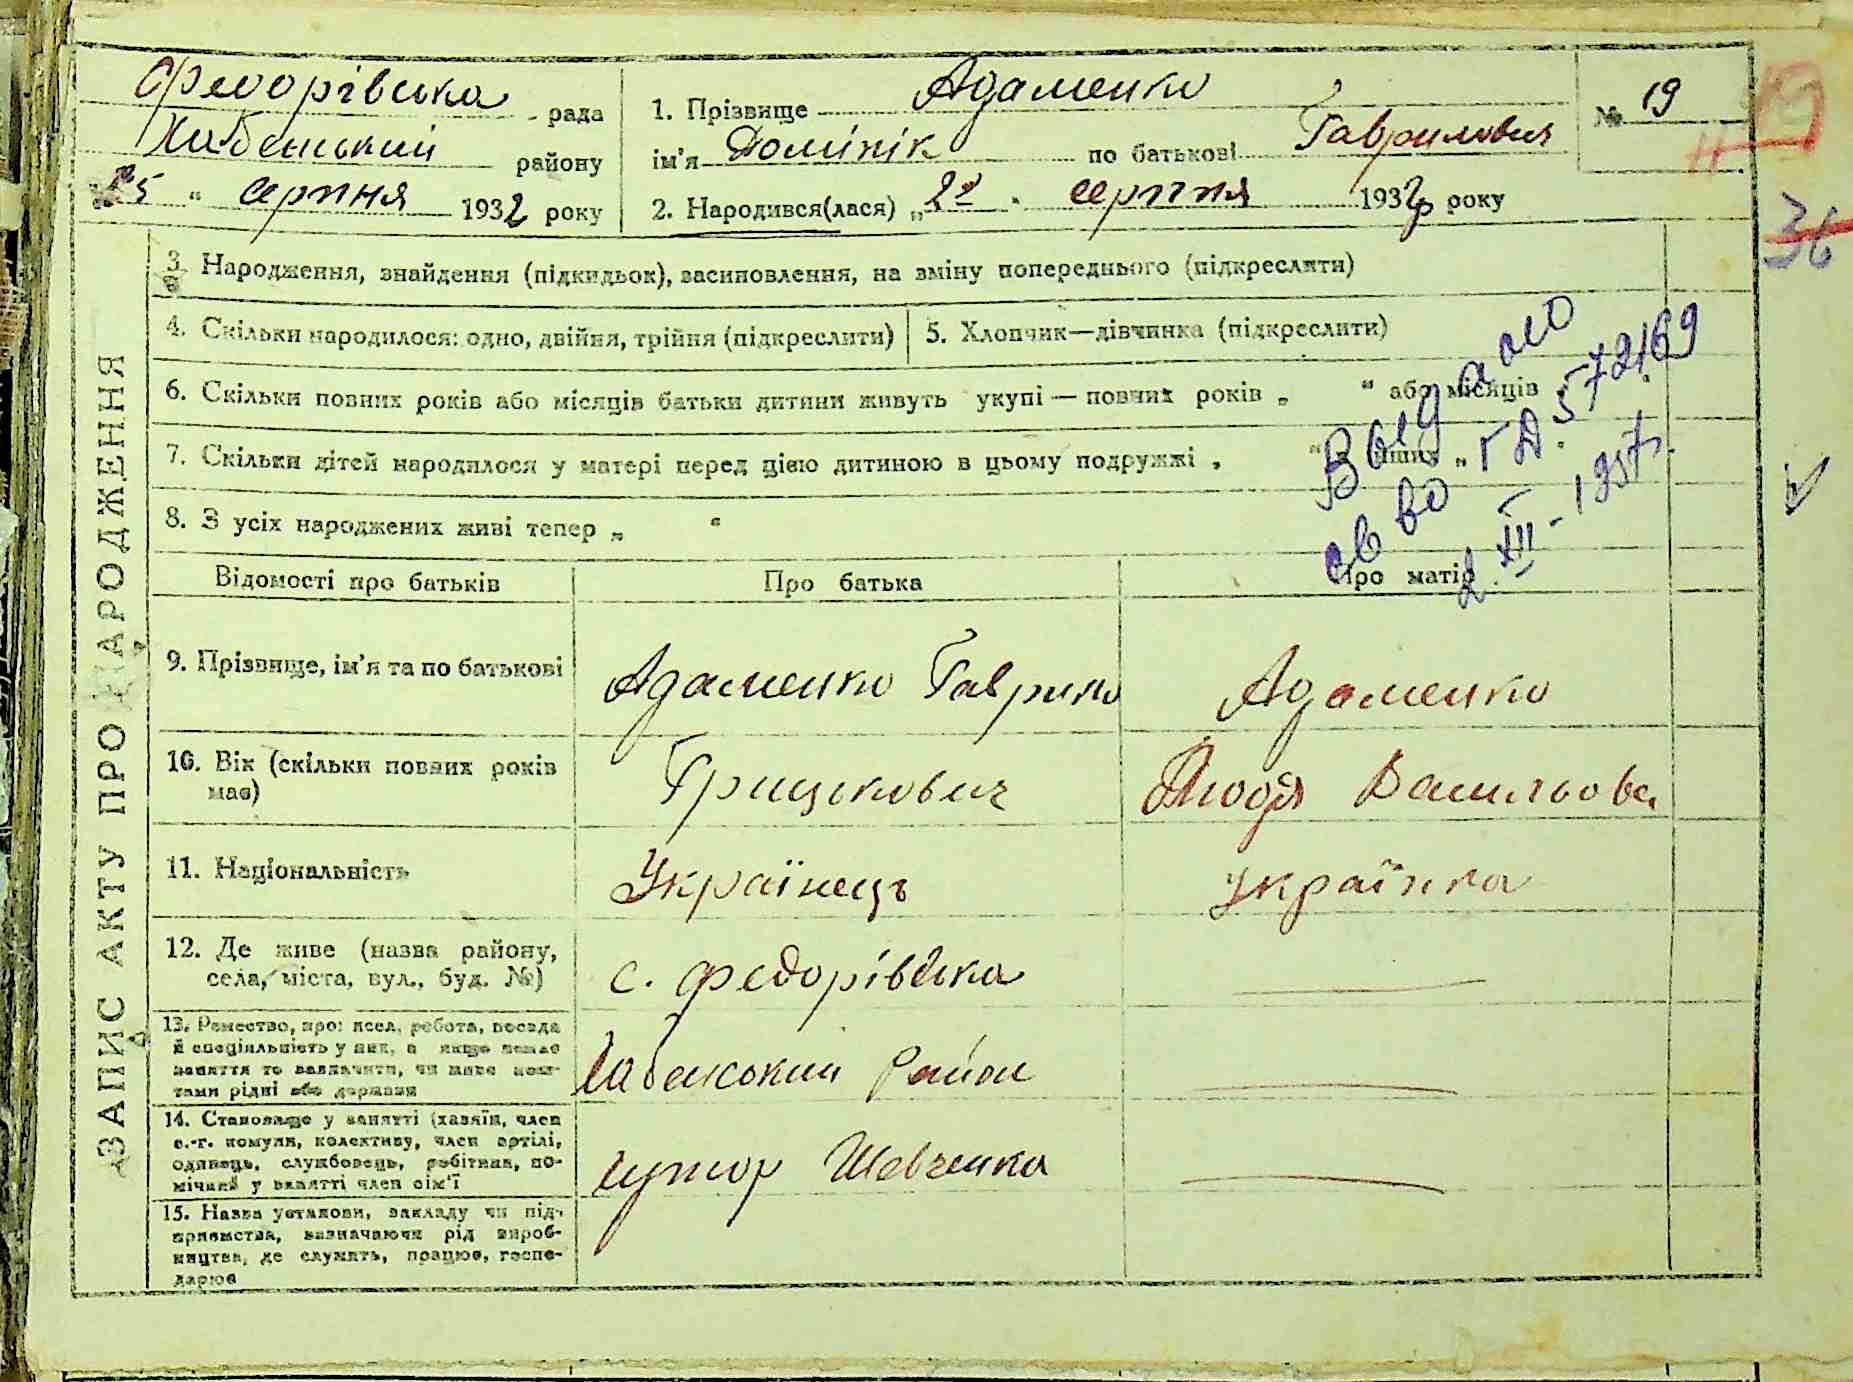 Федорівська рада
Хабенський району
25 " серпня 1932 року
1. Прізвище Адаменко
ім'я Домінік по батькові Гаврилович
2. Народився(лася) " 2го " серпня 1932 року
№ 19
19
11
36
ЗАПИС АКТУ ПРО НАРОДЖЕННЯ
3. Народження, знайдення (підкидьок), засиновлення, на зміну попереднього (підкреслити)
4. Скільки народилося: одно, двійня, трійня (підкреслити)
5. Хлопчик—дівчинка (підкреслити)
6. Скільки повних років або місяців батьки дитини живуть укупі — повних років „ “ або місяців
7. Скільки дітей народилося у матері перед цією дитиною в цьому подружжі „
8. З усіх народжених живі тепер „ “
Выдано
св во ГД. 572169
2 XII - 1957.
Відомості про батьків Про батька Про матір
9. Прізвище, ім'я та по батькові
Адаменко Гаврило
Адаменко
10. Вік (скільки повних років
має)
Грицькович
Васильова
11. Національність
Українець
українка
12. Де живе (назва району,
села, міста, вул., буд. №)
с. Федорівська
13. Ремество, промисел, робота, посада
й спеціяльність у них, а якщо немає
заняття то зазначити, чи живе кош-
тами рідні або держави
Хабенський Район
14. Становище у занятті (хазяїн, член
с.-г. комуни, колективу, член артілі,
одинець, службовець, робітник, по-
мічний у занятті член сім'ї
хутор Шевченка
15. Назва установи, закладу чи під-
приємства, визначаючи рід вироб-
ництва, де служить, працює, госпо-
дарює